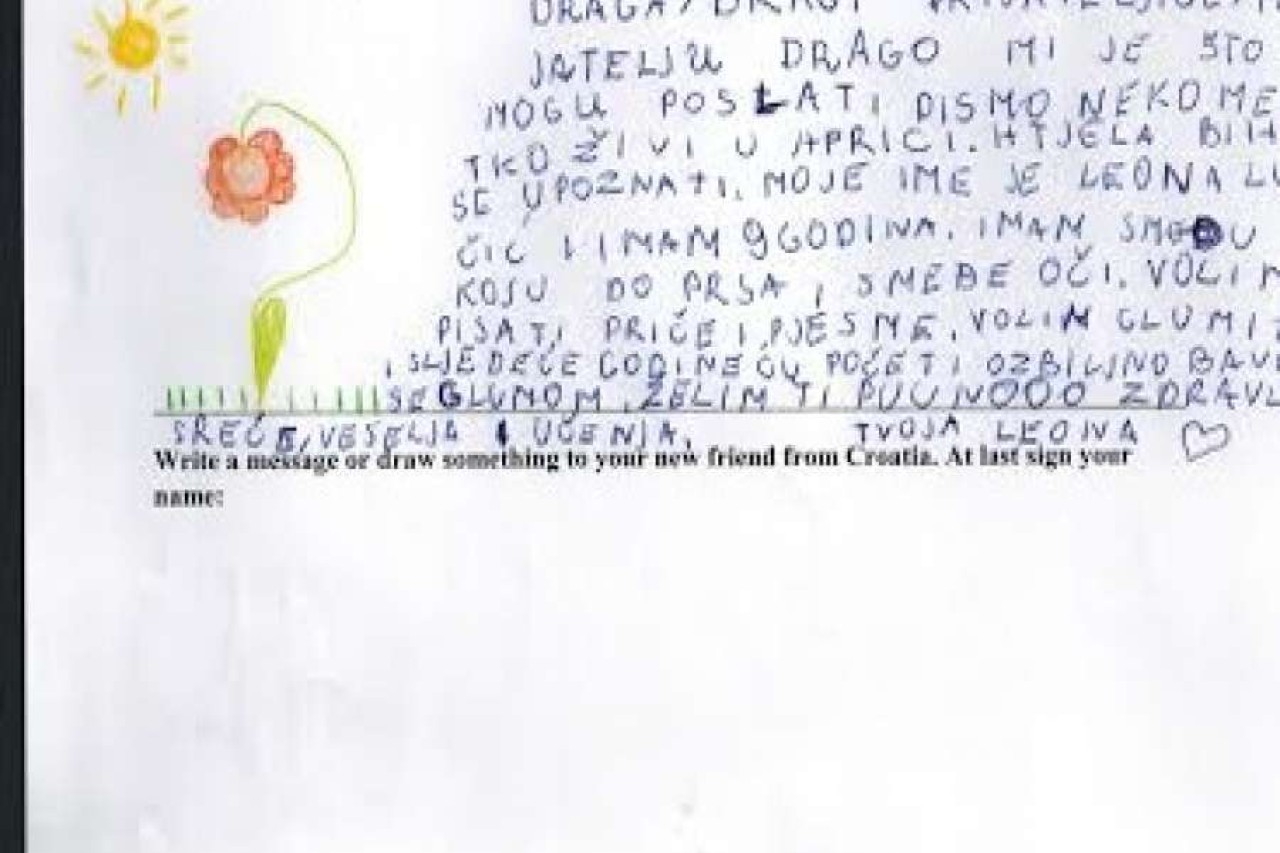 DRAGA/DRAGI
JATELJU DRAGO MI JE ŠTO
MOGU POSLATI PISMO NEKOME
TKO ŽIVI U APRICI. HTJELA BIH
SE UPOZNATI. MOJE IME JE LEONA LU
ČIĆ I IMAM 9 GODINA. IMAM SMEĐU
KOSU DO PRSA I SMEĐE OČI. VOLIM
PISATI PRIČE I PJESME. VOLIM GLUMI
I SLJEDEĆE GODINE ĆU POČETI OZBILJNO BAVI
SE GLUMOM. ŽELIM TI PUUNOOO ZDRAVL
SREĆE, VESELJA I UČENJA. TVOJA LEONA
Write a message or draw something to your new friend from Croatia. At last sign your
name: